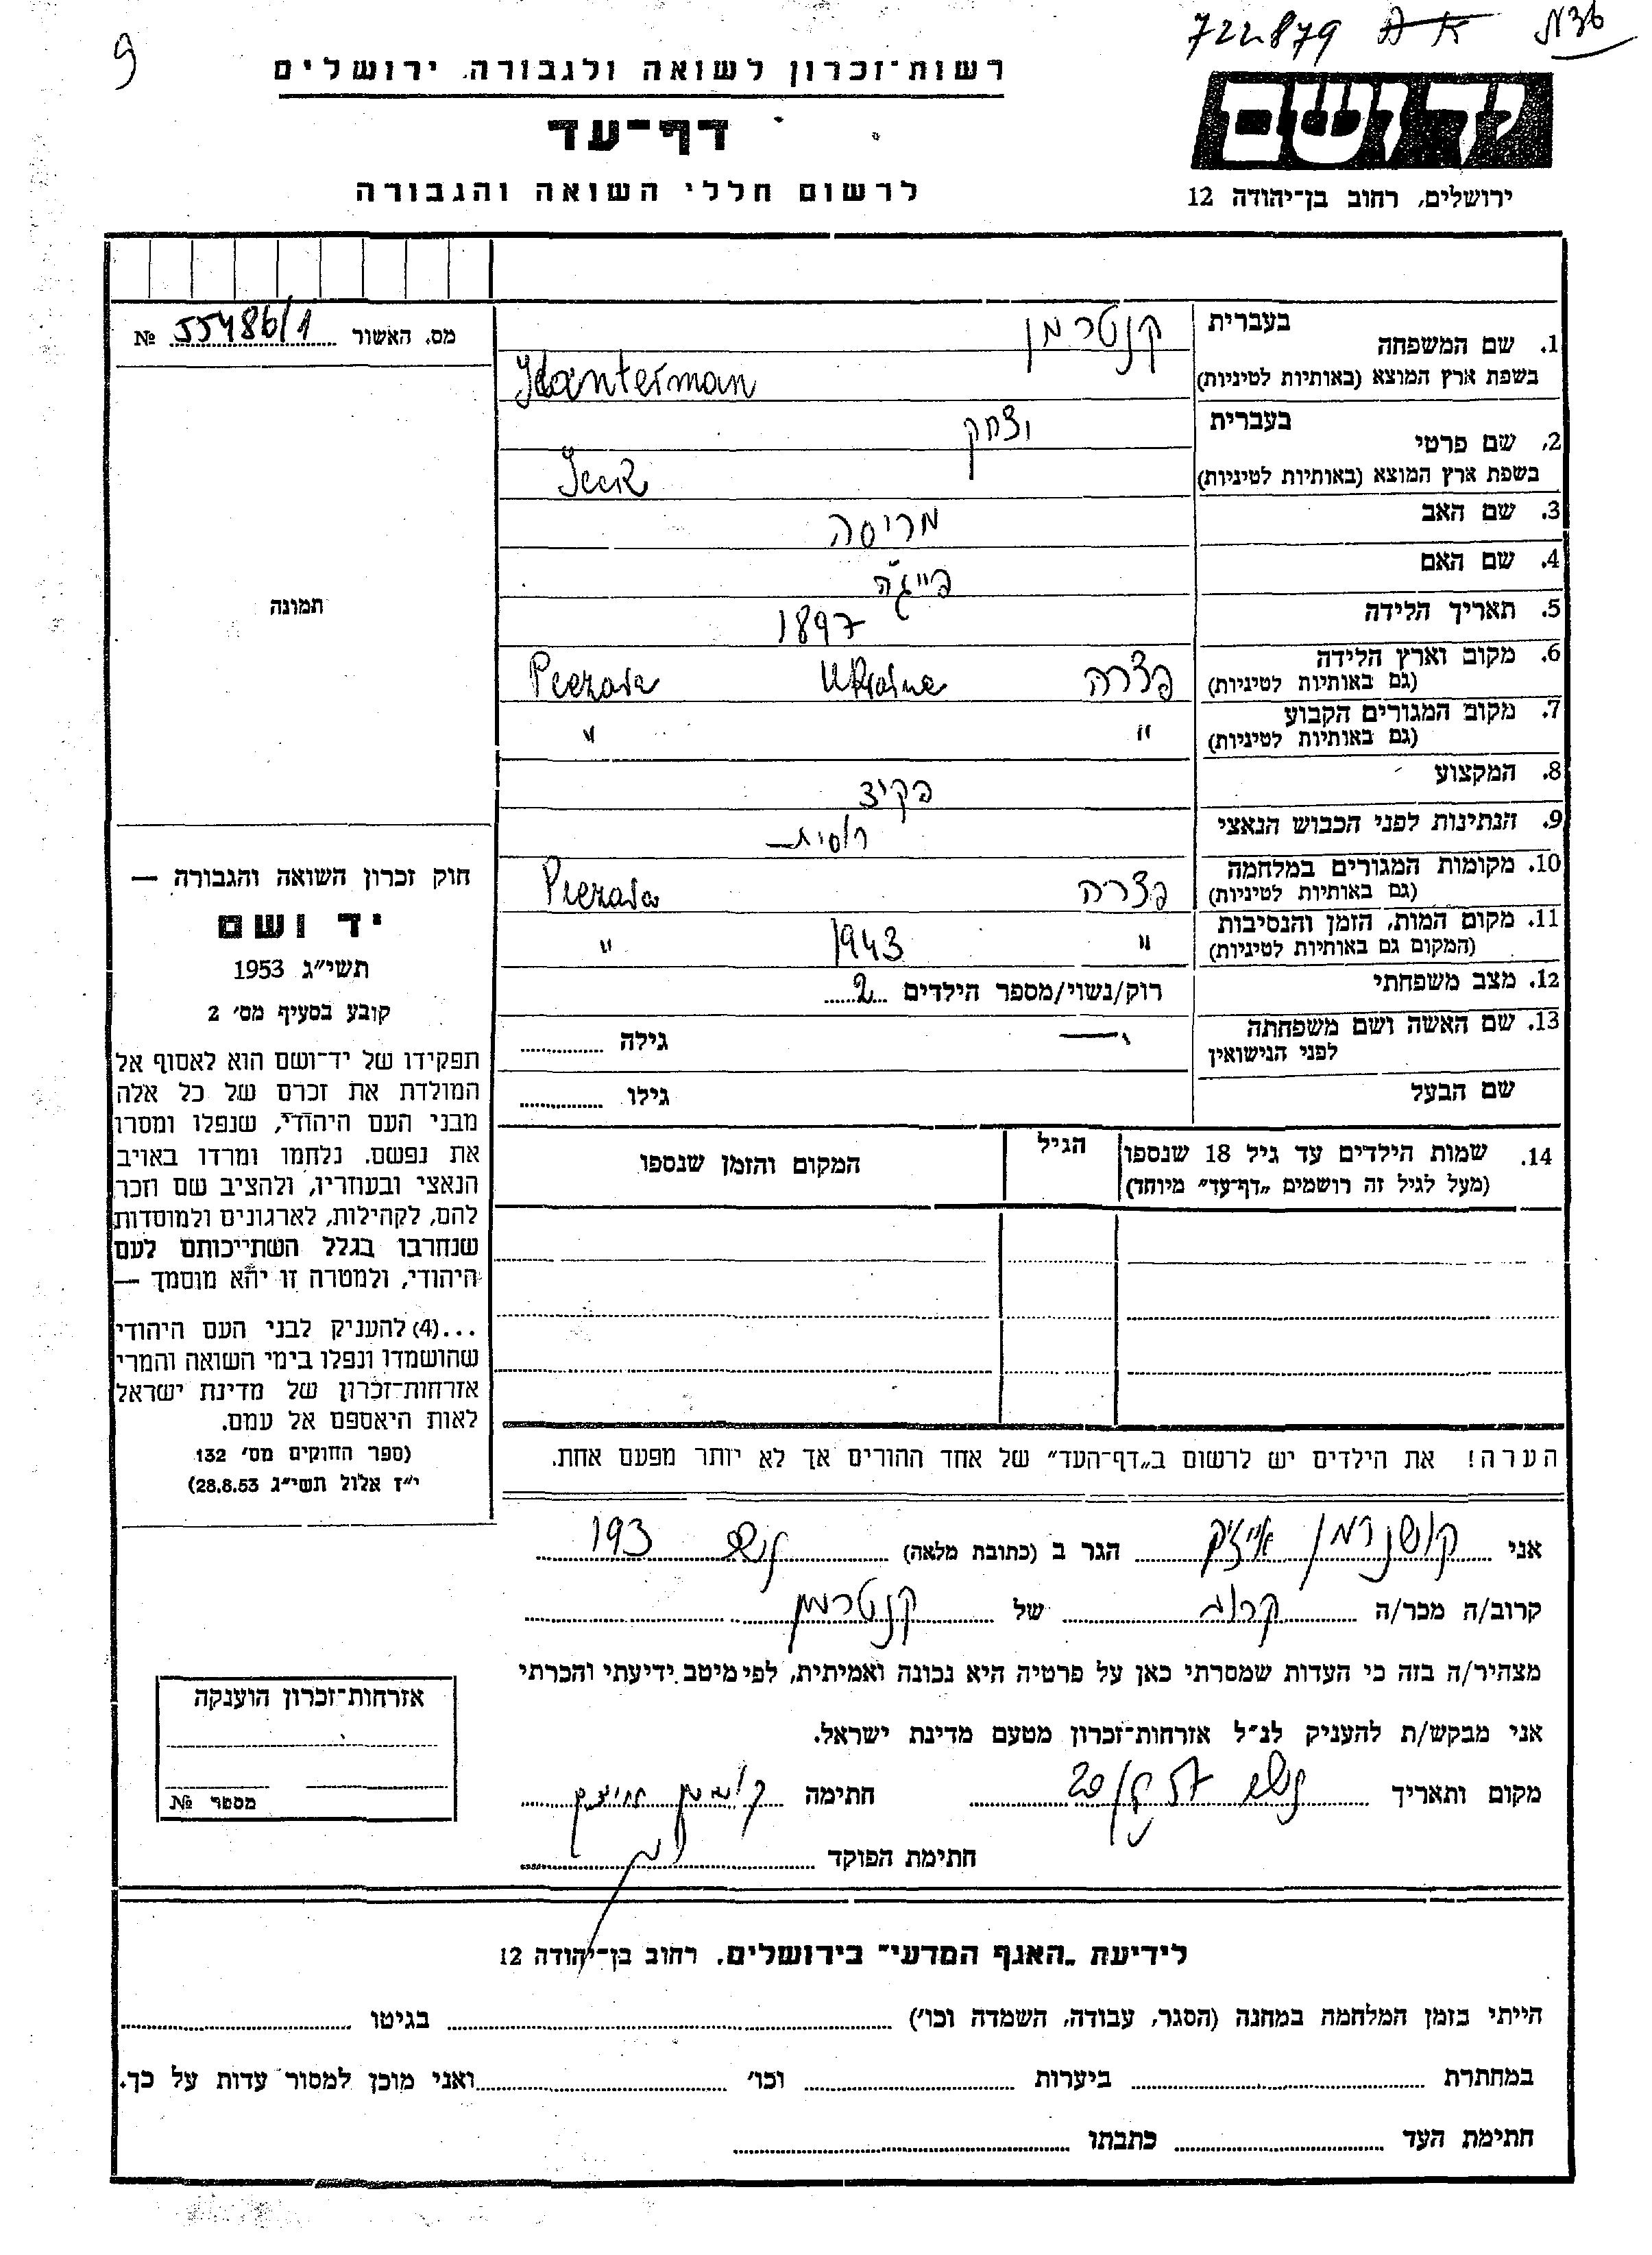 722879
9
רשות־זכרון לשואה ולגבורה, ירושלים
יד ושם
דף־עד
ירושלים, רחוב בן־יהודה 12
לרשום חללי השואה והגבורה
מס. האשור 55486/1 №
תמונה
1. שם המשפחה
בעברית קנטרמן
בשפת ארץ המוצא (באותיות לטיניות) Kanterman
2. שם פרטי
בעברית יצחק
בשפת ארץ המוצא (באותיות לטיניות)
3. שם האב
4. שם האם פייגה
5. תאריך הלידה 1897
6. מקום וארץ הלידה
(גם באותיות לטיניות) פצרה Ukraine Peczara
7. מקום המגורים הקבוע
(גם באותיות לטיניות) " "
8. המקצוע פקיד
9. הנתינות לפני הכבוש הנאצי רוסית
10. מקומות המגורים במלחמה
(גם באותיות לטיניות) פצרה Peczara
11. מקום המות, הזמן והנסיבות
(המקום גם באותיות לטיניות) " 1943 "
12. מצב משפחתי רוק/נשוי/מספר הילדים 2
13. שם האשה ושם משפחתה
לפני הנישואין — גילה
שם הבעל גילו
14. שמות הילדים עד גיל 18 שנספו
(מעל לגיל זה רושמים „דף־עד" מיוחד)
הגיל
המקום והזמן שנספו
חוק זכרון השואה והגבורה —
יד ושם
תשי"ג 1953
קובע בסעיף מס׳ 2
תפקידו של יד־ושם הוא לאסוף אל
המולדת את זכרם של כל אלה
מבני העם היהודי, שנפלו ומסרו
את נפשם, נלחמו ומרדו באויב
הנאצי ובעוזריו, ולהציב שם וזכר
להם, לקהילות, לארגונים ולמוסדות
שנחרבו בגלל השתייכותם לעם
היהודי, ולמטרה זו יהא מוסמך —
...(4) להעניק לבני העם היהודי
שהושמדו ונפלו בימי השואה והמרי
אזרחות־זכרון של מדינת ישראל
לאות היאספם אל עמם.
(ספר החוקים מס׳ 132
י"ז אלול תשי"ג 28.8.53)
הערה! את הילדים יש לרשום ב„דף־העד" של אחד ההורים אך לא יותר מפעם אחת.
אני קושנרמן אייזיק הגר ב (כתובת מלאה) 193
קרוב/ה מכר/ה קרוב של קנטרמן
מצהיר/ה בזה כי העדות שמסרתי כאן על פרטיה היא נכונה ואמיתית, לפי מיטב ידיעתי והכרתי
אני מבקש/ת להעניק לנ"ל אזרחות־זכרון מטעם מדינת ישראל.
מקום ותאריך חתימה
חתימת הפוקד
אזרחות־זכרון הוענקה
מספר №
לידיעת „האגף המדעי" בירושלים, רחוב בן־יהודה 12
הייתי בזמן המלחמה במחנה (הסגר, עבודה, השמדה וכו׳) בגיטו
במחתרת ביערות וכו׳ ואני מוכן למסור עדות על כך.
חתימת העד כתבתו